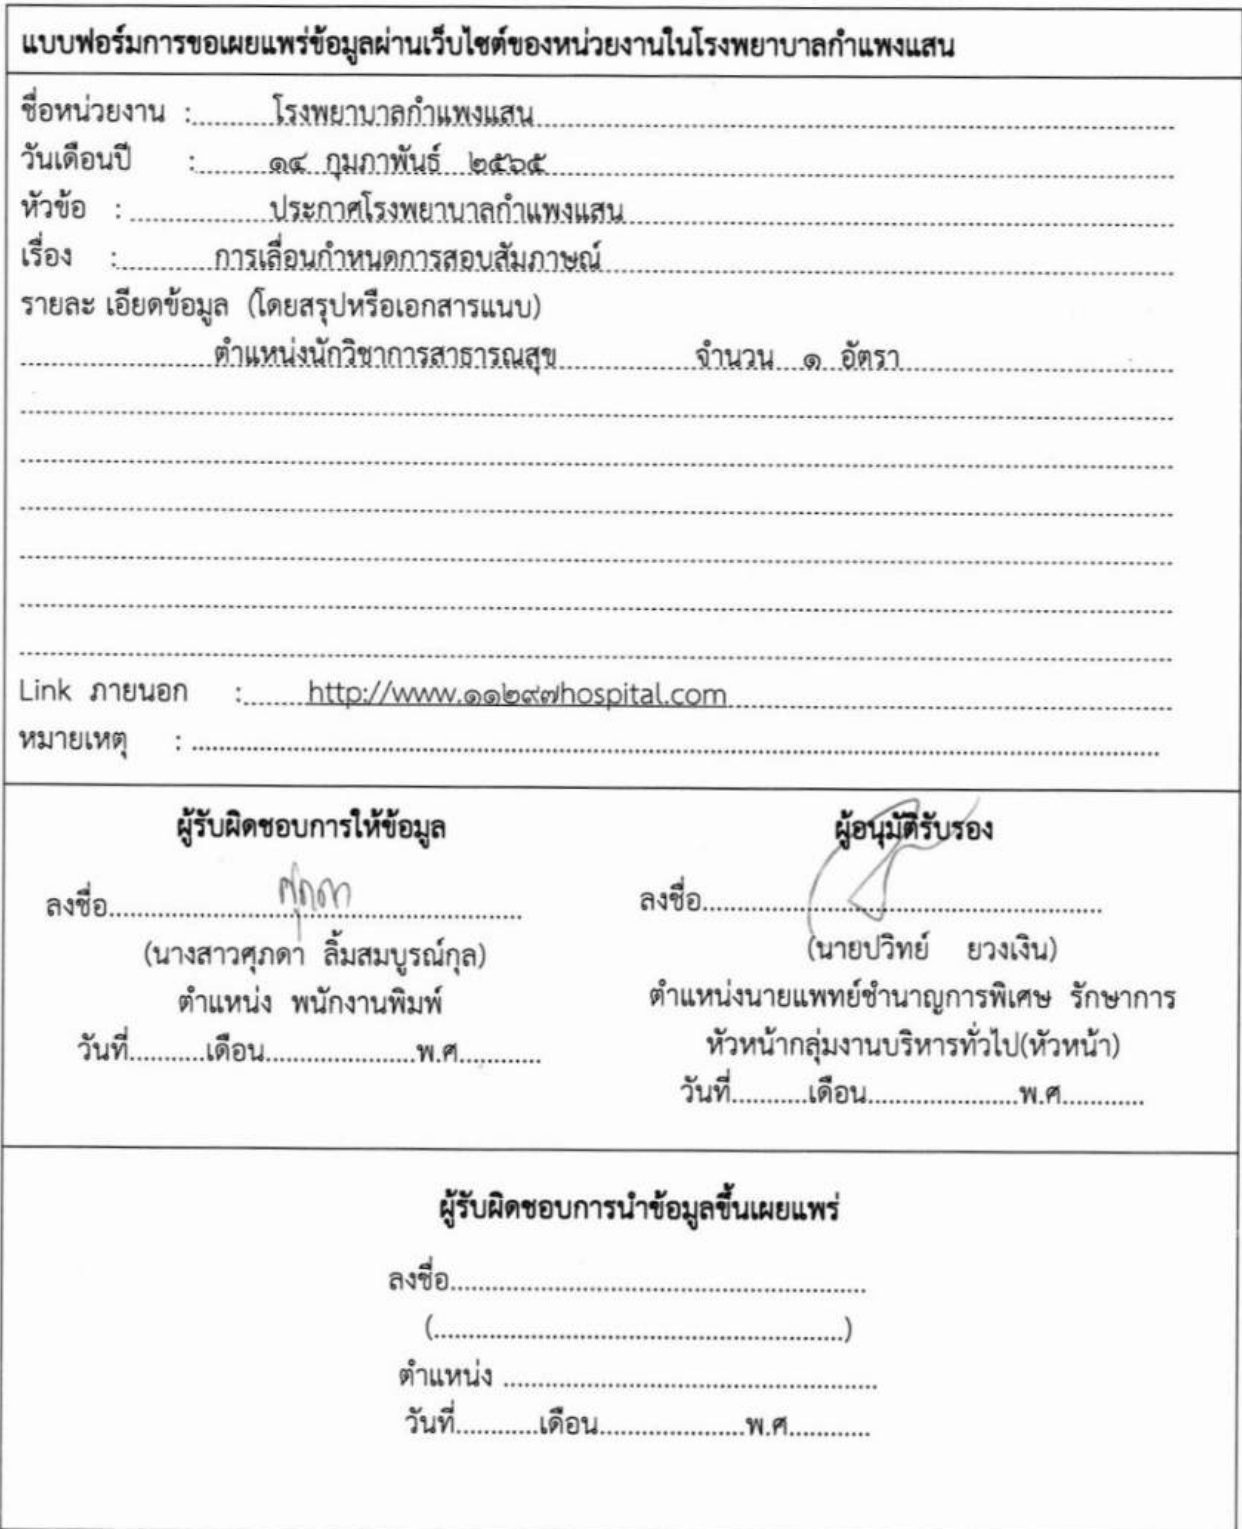 แบบฟอร์มการขอเผยแพร่ข้อมูลผ่านเว็บไซต์ของหน่วยงานในโรงพยาบาลกำแพงแสน
ชื่อหน่วยงาน :.........โรงพยาบาลกำแพงแสน.........
วันเดือนปี :.........๑๔ กุมภาพันธ์ ๒๕๖๕.........
หัวข้อ : .........ประกาศโรงพยาบาลกำแพงแสน.........
เรื่อง :.........การเลื่อนกำหนดการสอบสัมภาษณ์.........
รายละ เอียดข้อมูล (โดยสรุปหรือเอกสารแนบ)
.........ตำแหน่งนักวิชาการสาธารณสุข.........จำนวน ๑ อัตรา.........
Link ภายนอก :.........http://www.๑๑๒๙๗hospital.com.........
หมายเหตุ : .........
ผู้รับผิดชอบการให้ข้อมูล ผู้อนุมัติรับรอง
ลงชื่อ.........ศุภดา......... ลงชื่อ.........
(นางสาวศุภดา ลิ้มสมบูรณ์กุล) (นายปวิทย์ ยวงเงิน)
ตำแหน่ง พนักงานพิมพ์ ตำแหน่งนายแพทย์ชำนาญการพิเศษ รักษาการ
วันที่.........เดือน.........พ.ศ......... หัวหน้ากลุ่มงานบริหารทั่วไป(หัวหน้า)
วันที่.........เดือน.........พ.ศ.........
ผู้รับผิดชอบการนำข้อมูลขึ้นเผยแพร่
ลงชื่อ.........
(.........)
ตำแหน่ง .........
วันที่.........เดือน.........พ.ศ.........